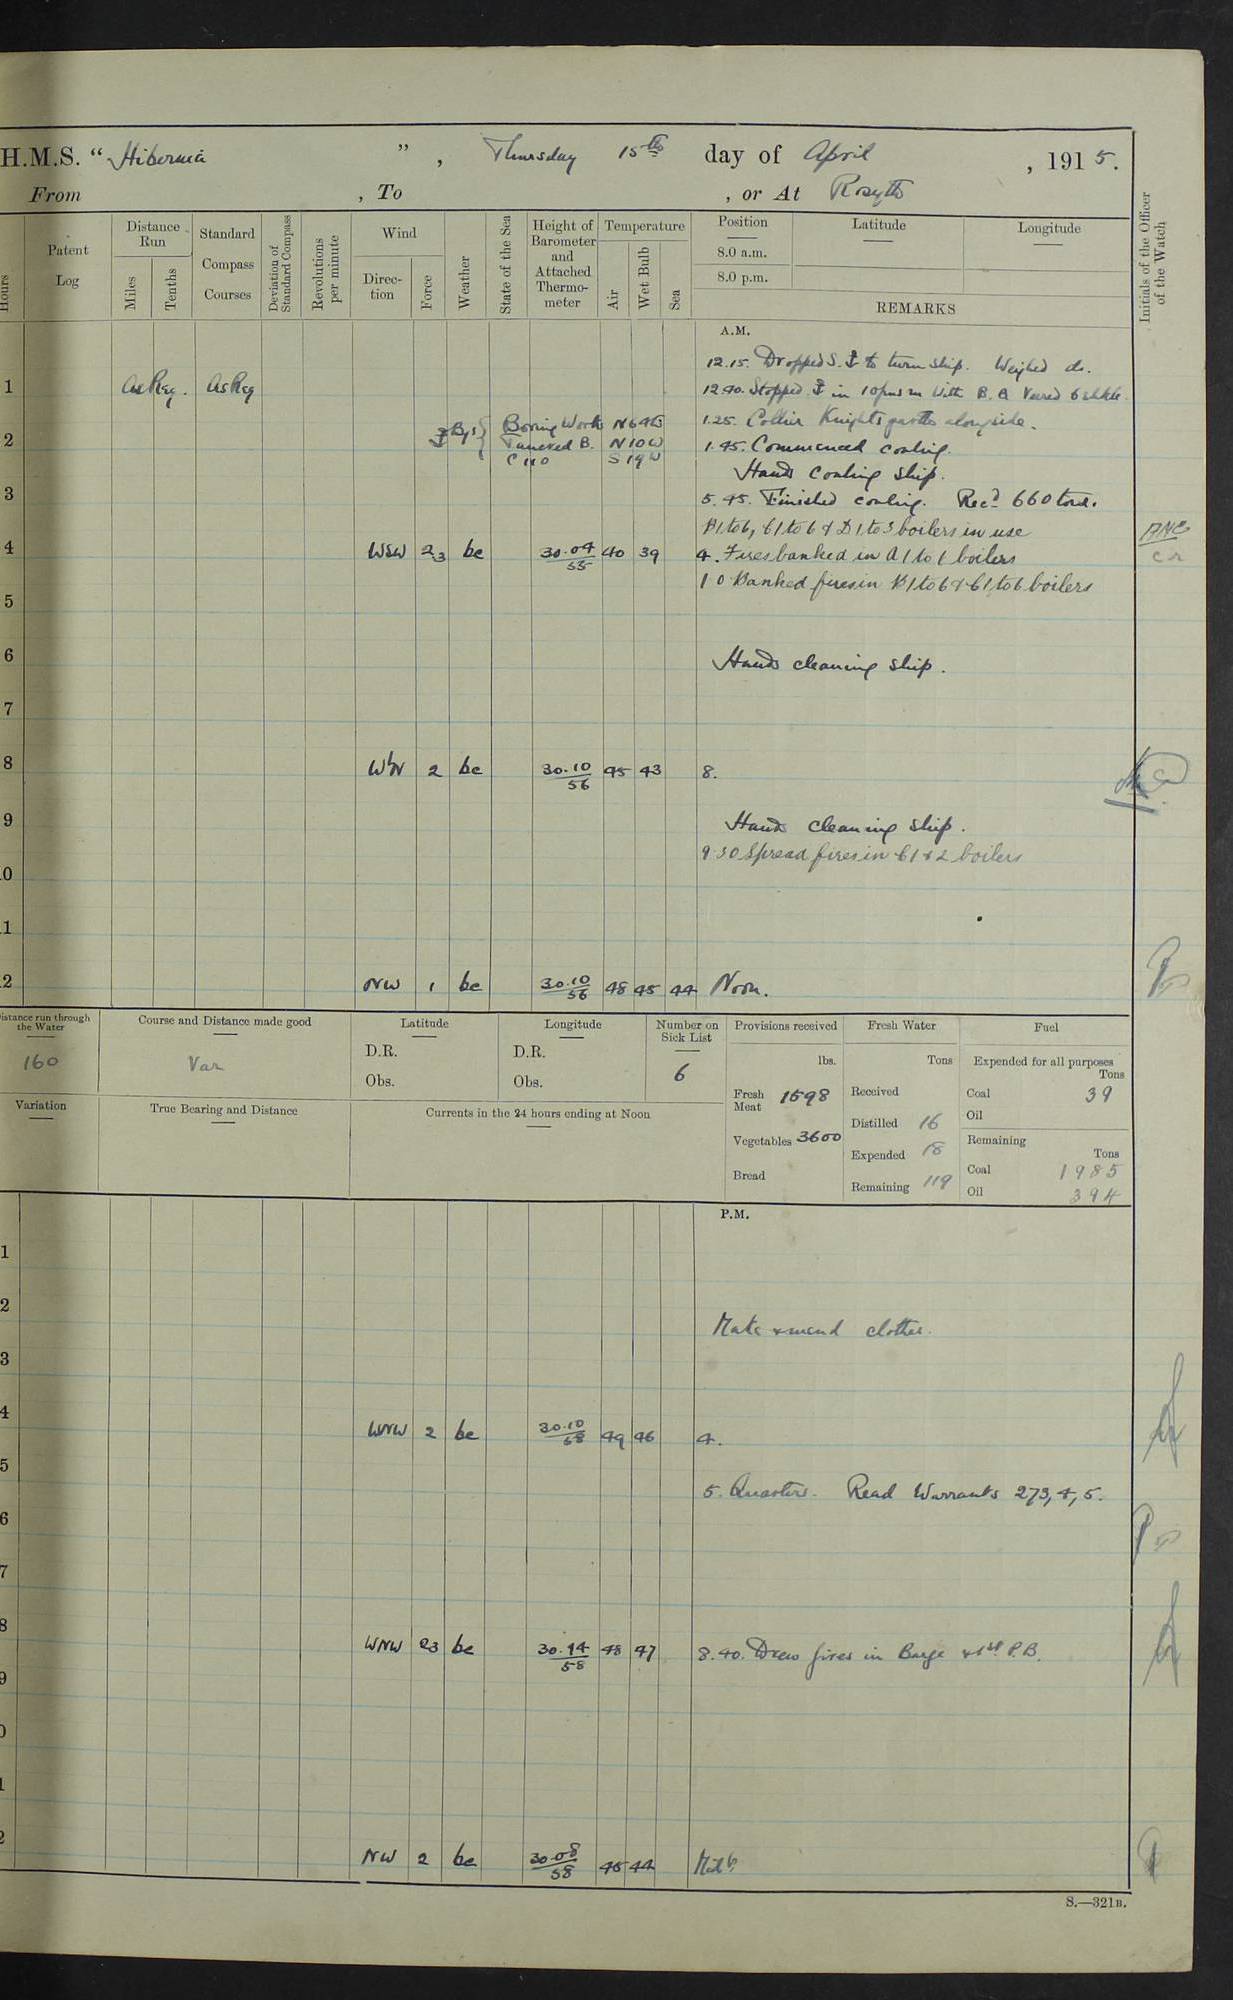 H.M.S. "Hibernia", Thursday 15th day of April, 1915.
From , To , or At Rosyth
Hours
Patent Log
Distance Run
Miles
Tenths
Standard Compass Courses
Deviation of Standard Compass
Revolutions per minute
Wind
Direction
Force
Weather
State of the Sea
Height of Barometer and Attached Thermometer
Temperature
Air
Wet Bulb
Sea
Position
8.0 a.m.
8.0 p.m.
Latitude
Longitude
REMARKS
Initials of the Officer of the Watch
A.M.
12.15. Dropped S. ⚓ to turn ship. Weighed do.
1 As Req. As Req 12.40. Stopped ⚓ in 10 fms m with B. B Veered 6 shkle.
⚓ Bgs { Boring Works N64E 1.25. Collier Knightsgarth alongside.
2 Tancred B. N10W 1.45. Commenced coaling.
C 110 S19W
Hands coaling ship.
3 5.45. Finished coaling. Recd 660 tons.
B1 to 6, C1 to 6 & D1 to 3 boilers in use
4 WSW 23 bc 30.04 55 40 39 4. Fires banked in A 1 to 6 boilers
5 10 Banked fires in B1 to 6 & C1 to 6 boilers
6 Hands cleaning ship.
7
8 WbN 2 bc 30.10 56 45 43 8.
9 Hands cleaning ship.
9.30 Spread fires in C1 & 2 boilers
10
11
12 NW 1 bc 30.10 56 48 45 44 Noon.
Distance run through the Water
160
Course and Distance made good
Var
Latitude
D.R.
Obs.
Longitude
D.R.
Obs.
Number on Sick List
6
Provisions received
lbs.
Fresh Meat 1598
Vegetables 3600
Bread
Fresh Water
Tons
Received
Distilled 16
Expended 18
Remaining 119
Fuel
Expended for all purposes
Tons
Coal 39
Oil
Remaining
Tons
Coal 1985
Oil 394
Variation
True Bearing and Distance
Currents in the 24 hours ending at Noon
P.M.
1
2 Make & mend clothes.
3
4 WNW 2 bc 30.10 58 49 46 4.
5 5. Quarters. Read Warrants 273, 4, 5.
6
7
8 WNW 23 bc 30.14 58 48 47 8.40. Drew fires in Barge & 1st P.B.
9
10
11
12 NW 2 bc 30.08 58 45 44 Midt.
S.—321B.